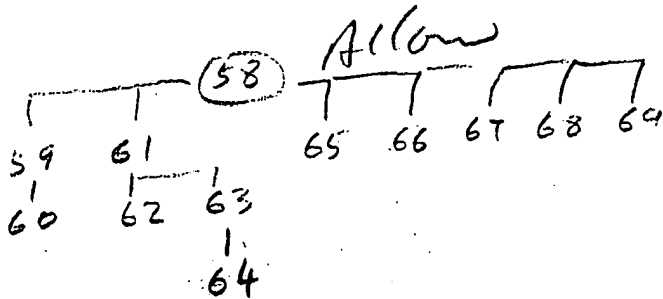 Allow
58
59 61 65 66 67 68 69
60 62 63
64